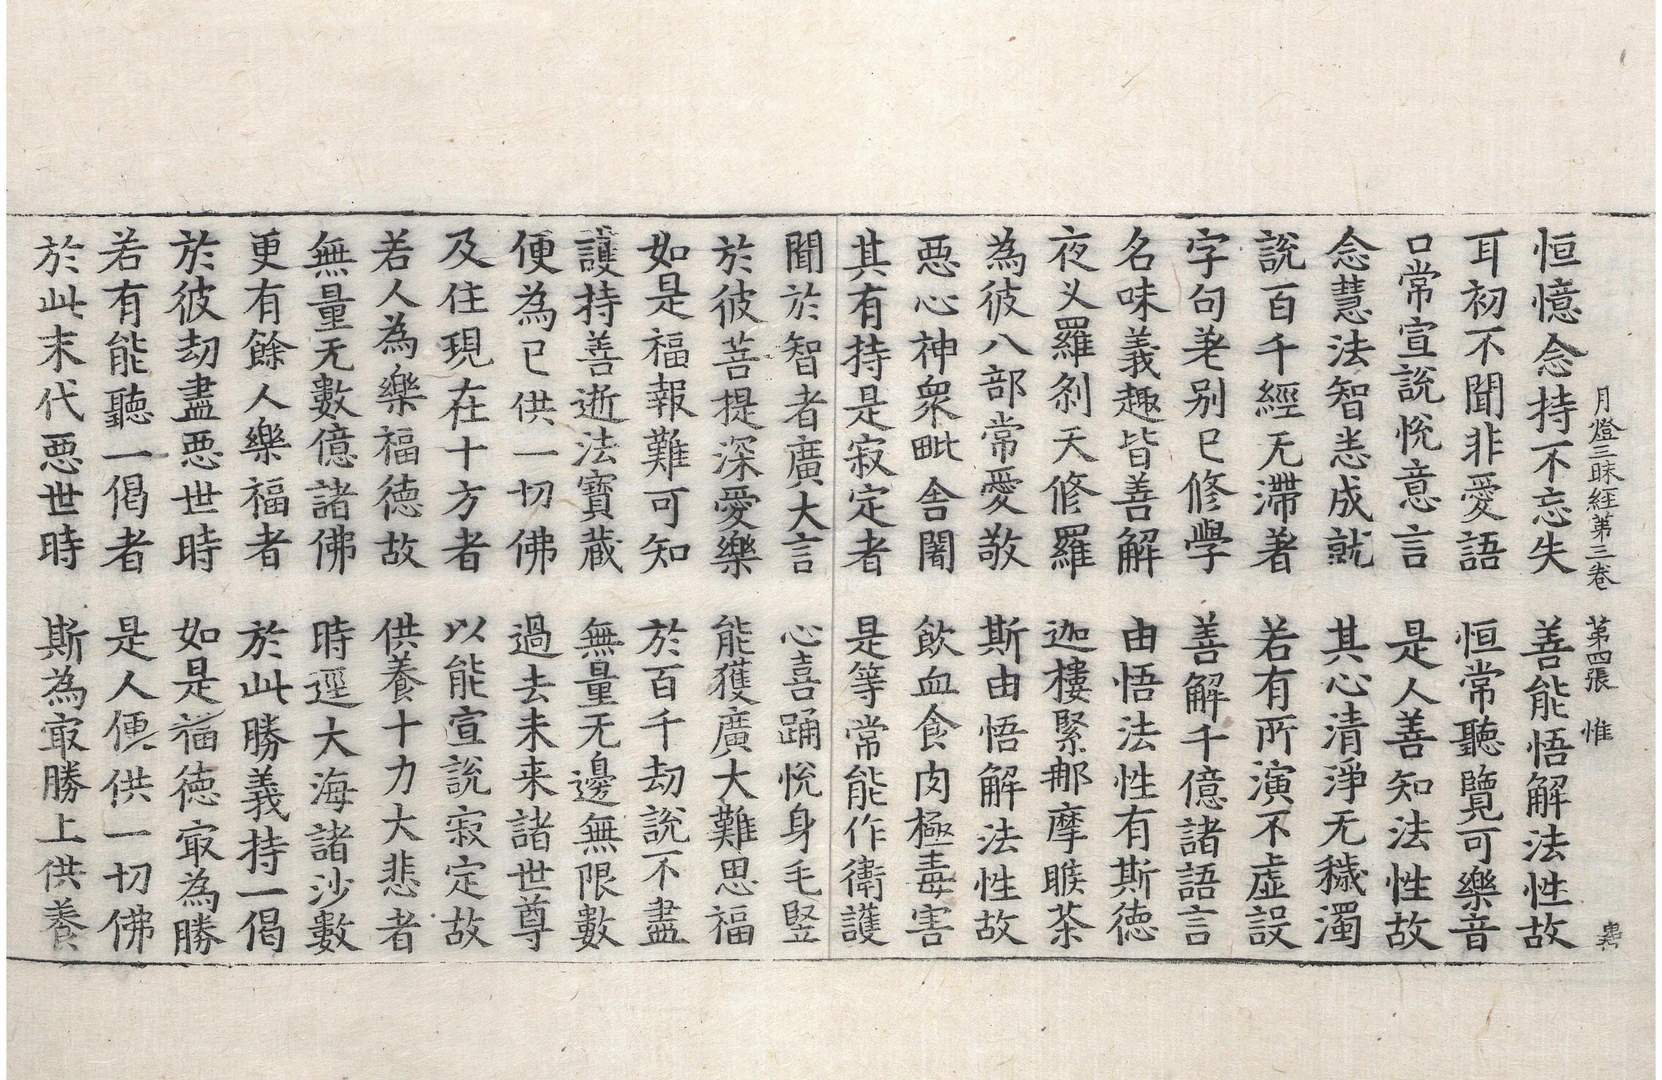 月燈三昧經第三卷　第四張　惟
恒憶念持不忘失　善能悟解法性故
耳初不聞非愛語　恒常聽覽可樂音
口常宣說悅意言　是人善知法性故
念慧法智恙成就　其心清淨无穢濁
說百千經无滯著　若有所演不虛設
字句差别已修學　善解千億諸語言
名味義趣皆善解　由悟法性有斯德
夜义羅剎天修羅　迦樓緊那摩睺茶
為彼八部常愛敬　斯由悟解法性故
惡心神衆毗舍闍　飲血食肉極毒害
其有持是寂定者　是等常能作衛護
聞於智者廣大言　心喜踊悅身毛竪
於彼菩提深愛樂　能獲廣大難思福
如是福報難可知　於百千劫說不盡
護持善逝法寶藏　無量无邊無限數
便為已供一切佛　過去未来諸世尊
及住現在十方者　以能宣說寂定故
若人為樂福德故　供養十力大悲者
無量无數億諸佛　時逕大海諸沙數
更有餘人樂福者　於此勝義持一偈
於彼劫盡惡世時　如是福德㝡為勝
若有能聽一偈者　是人便供一切佛
於此末代惡世時　斯為㝡勝上供養